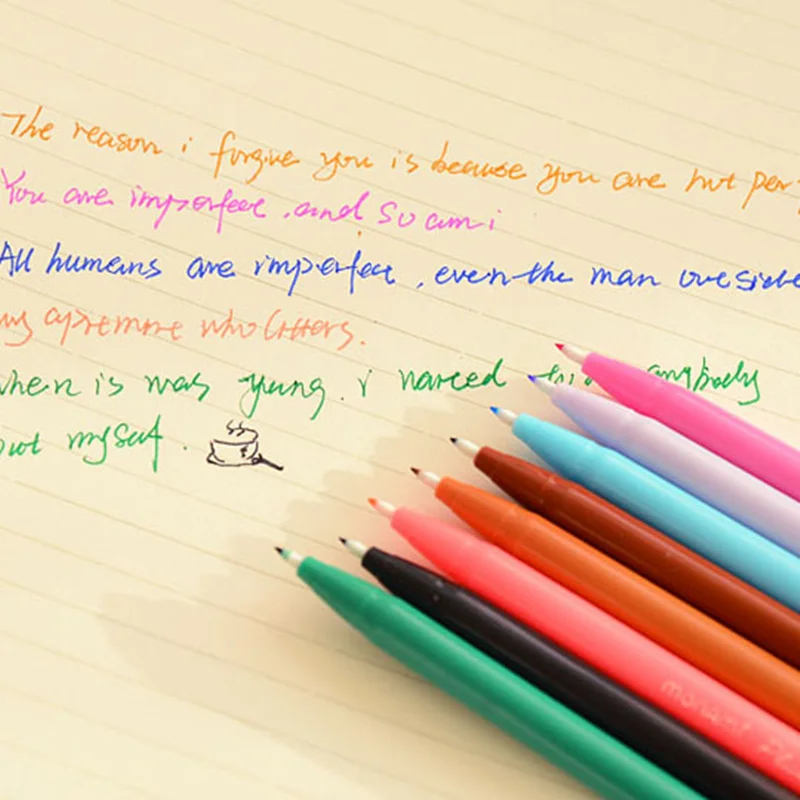 The reason i forgive you is because you are not per
You are imperfect, and so am i
All humans are imperfect, even the man outside
who litters.
when is was young. i
anybody
but myself.